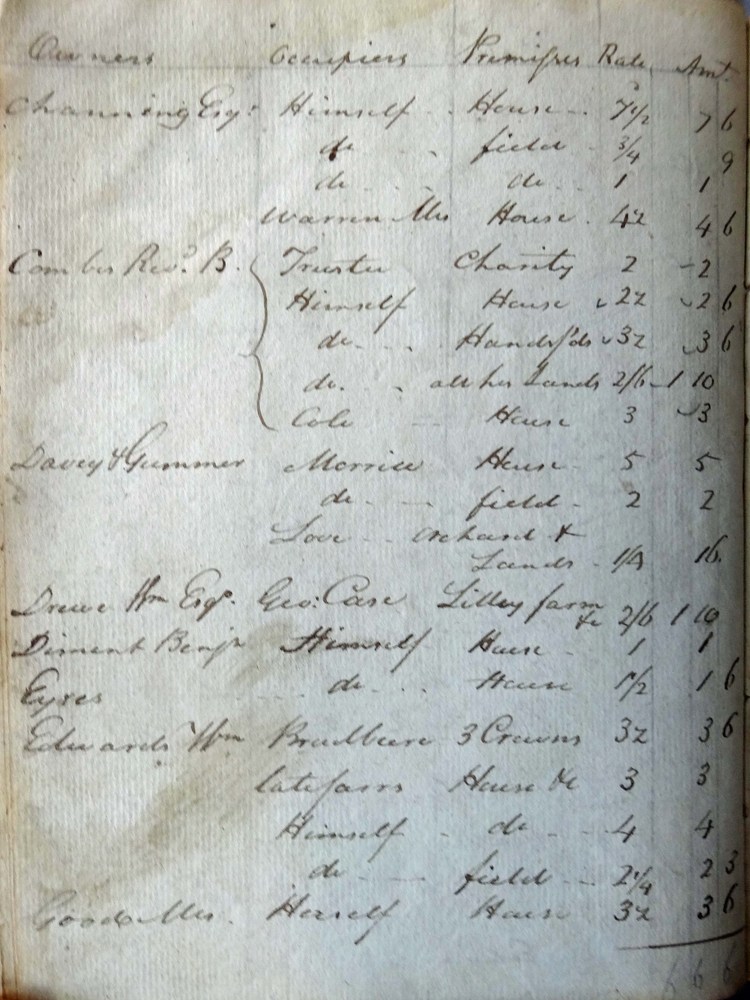 Owners Occupiers Premises Rate Amt.
Channing Esqr. Himself House 7 1/2 7 6
do field 3/4 9
do do 1 1
Warren Mrs House 4 1/2 4 6
Combes Revd. B. Trustee Charity 2 2
Himself House 2 1/2 2 6
do 3 1/2 3 6
do. all his Lands 2/6 1 10
Cole House 3 3
Davey & Gummer House 5 5
do field 2 2
Love orchard &
Lands 1/4 16
Drewe Wm Esqr. Geo: Case Lilley farm
&c 2/6 1 10
Diment Benjn Himself House 1 1
Eyres do House 1 1/2 1 6
Edwards Wm Bradbeere 3 Crowns 3 1/2 3 6
late House &c 3 3
Himself do 4 4
do field 2 1/4 2 3
Good Mrs. Herself House 3 1/2 3 6
6 6 6